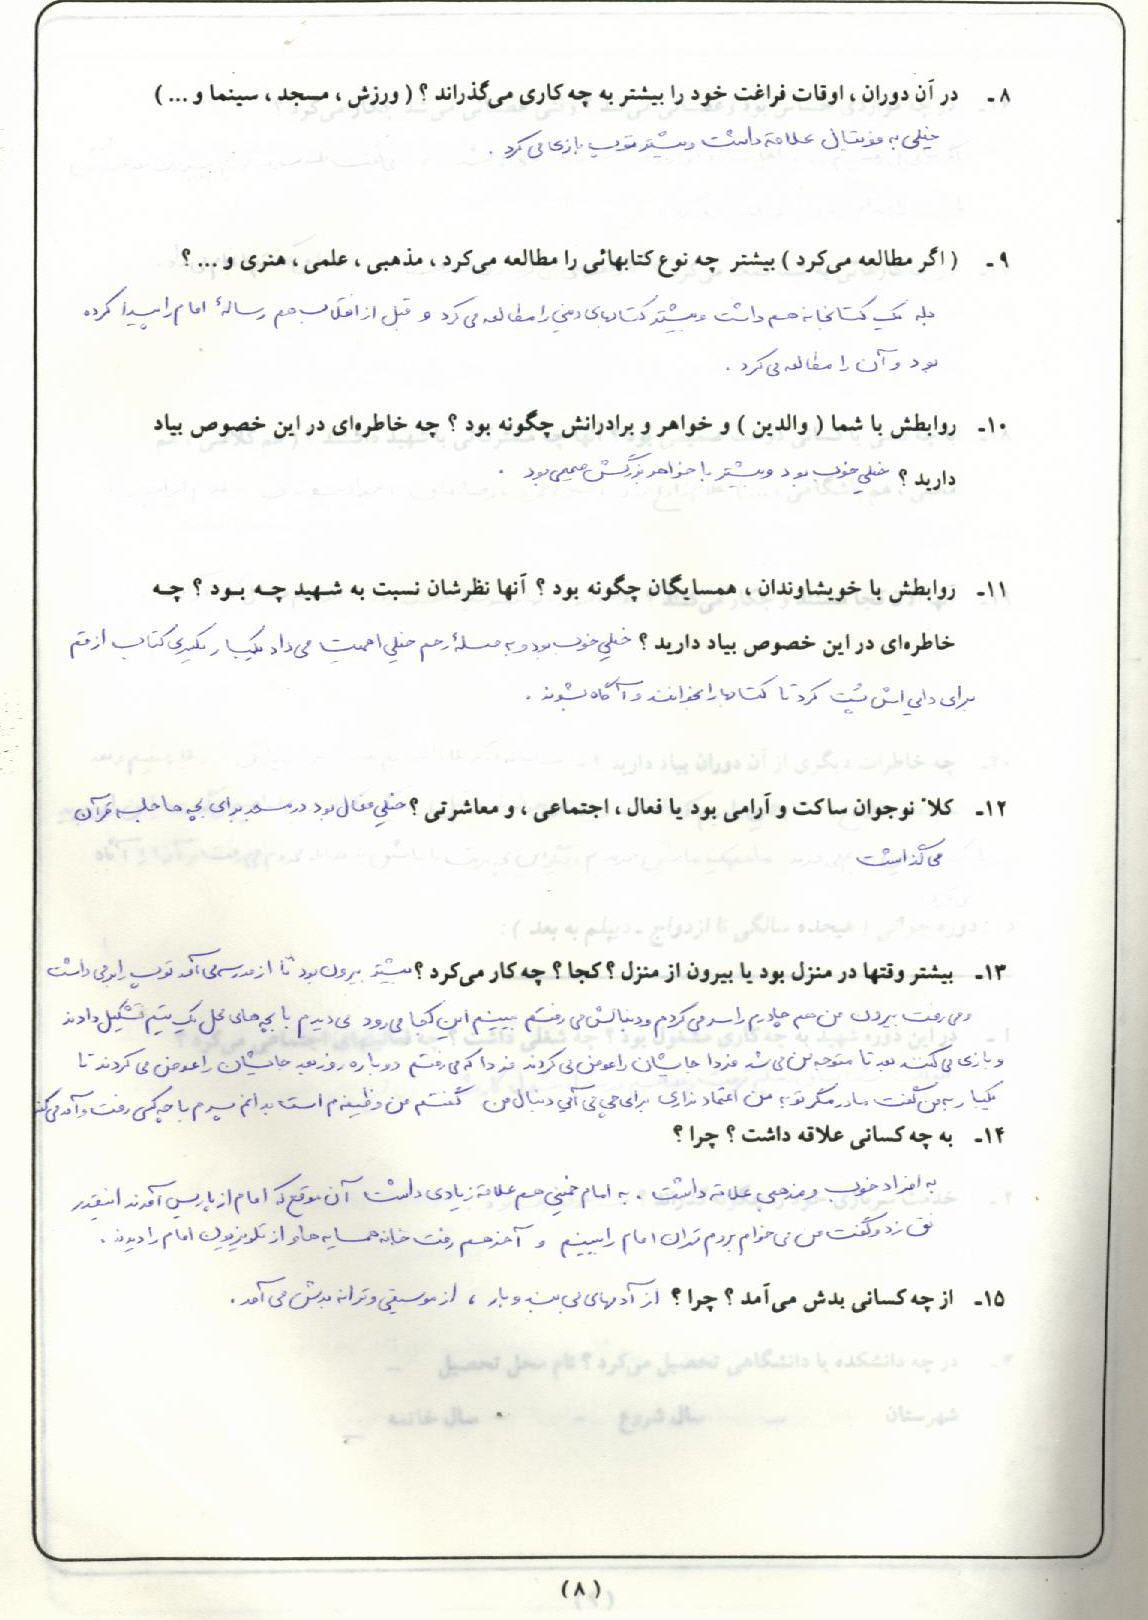 ۸ـ در آن دوران ، اوقات فراغت خود را بیشتر به چه کاری می‌گذراند ؟ ( ورزش ، مسجد ، سینما و ... )
خیلی به فوتبال علاقه داشت و بیشتر توپ بازی می کرد .
۹ـ ( اگر مطالعه می‌کرد ) بیشتر چه نوع کتابهائی را مطالعه می‌کرد ، مذهبی ، علمی ، هنری و ... ؟
بله یک کتابخانه هم داشت و بیشتر کتابهای دینی را مطالعه می کرد و قبل از انقلاب هم رسالهٔ امام را پیدا کرده
بود و آن را مطالعه می کرد .
۱۰ـ روابطش با شما ( والدین ) و خواهر و برادرانش چگونه بود ؟ چه خاطره‌ای در این خصوص بیاد
دارید ؟ خیلی خوب بود و بیشتر با خواهر بزرگش صمیمی بود .
۱۱ـ روابطش با خویشاوندان ، همسایگان چگونه بود ؟ آنها نظرشان نسبت به شهید چه بود ؟ چه
خاطره‌ای در این خصوص بیاد دارید ؟ خیلی خوب بود و به مسلهٔ رحم خیلی اهمیت می داد یکبار یکسری کتاب از قم
برای دایی اش پُست کرد تا کتابها را بخوانند و آگاه بشوند .
۱۲ـ کلاً نوجوان ساکت و آرامی بود یا فعال ، اجتماعی ، و معاشرتی ؟ خیلی فعال بود در مسجد برای بچه ها جلسه قرآن
می گذاشت
۱۳ـ بیشتر وقتها در منزل بود یا بیرون از منزل ؟ کجا ؟ چه کار می‌کرد ؟ بیشتر بیرون بود تا از مدرسه می آمد توپ را بر می داشت
و می رفت بیرون من هم چادرم را سر می کردم و دنبالش می رفتم ببینم این کجا می رود می دیدم با بچه های محل یک تیم تشکیل دادند
و بازی می کنند بعد تا متوجه من می شد فردا جایشان را عوض می کردند فردا که می رفتم دوباره روز بعد جایشان را عوض می کردند تا
یکبار به من گفت مادر مگر تو به من اعتماد نداری برای چی می آئی دنبال من گفتم من وظیفه م است بدانم پسرم با چه کسی رفت و آمد می کند
۱۴ـ به چه کسانی علاقه داشت ؟ چرا ؟
به افراد خوب و مذهبی علاقه داشت . به امام خمینی هم علاقهٔ زیادی داشت آن موقع که امام از پاریس آمدند اینقدر
نق زد و گفت من می خوام بروم تهران امام را ببینم و آخر هم رفت خانه همسایه ها و از تلویزیون امام را دیدند .
۱۵ـ از چه کسانی بدش می‌آمد ؟ چرا ؟ از آدمهای بی بند و بار ، از موسیقی و ترانه بدش می آمد .
(۸)